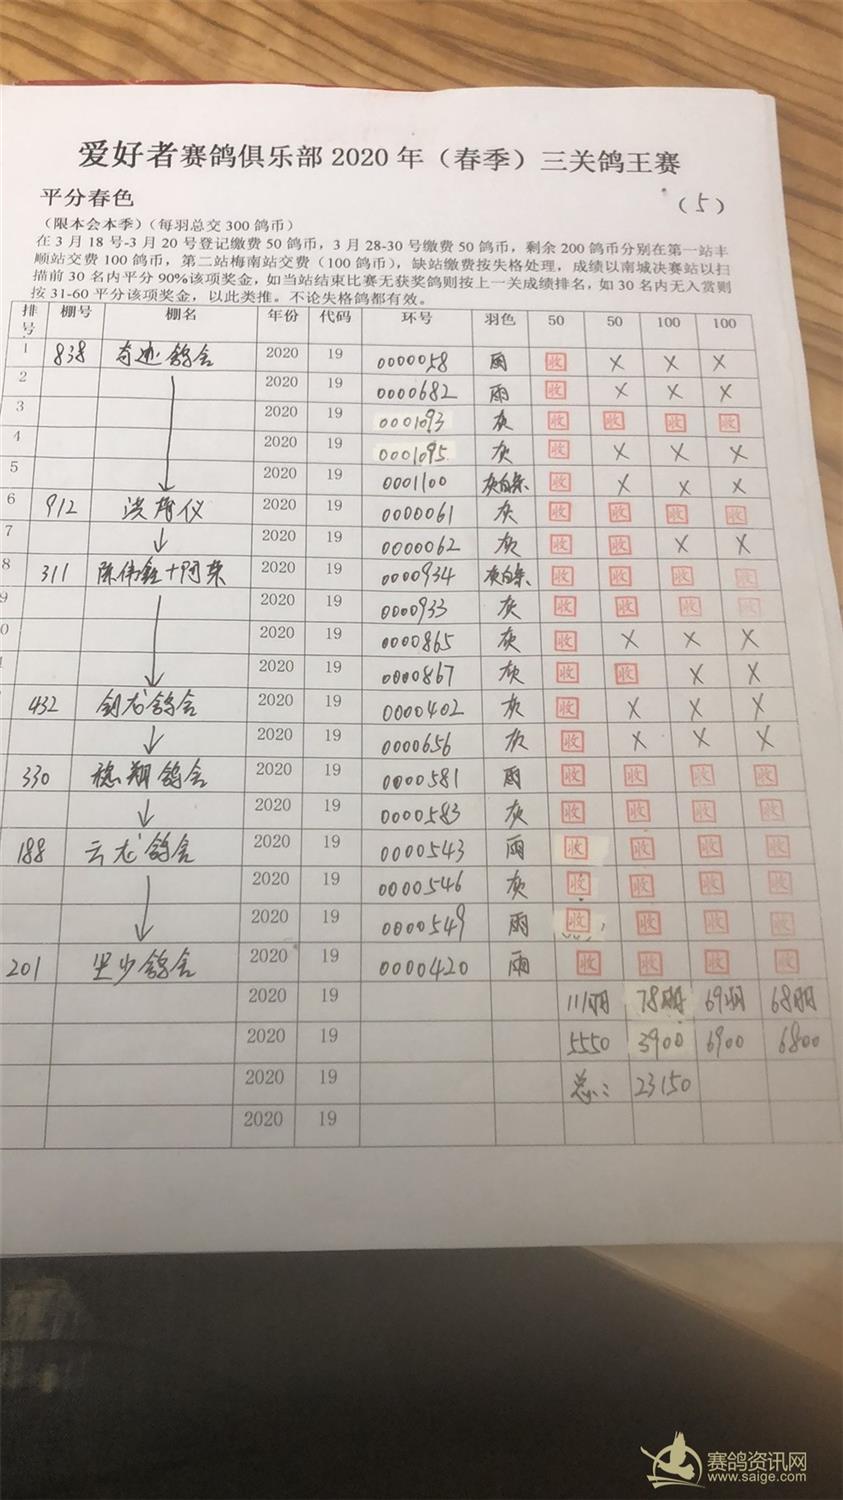 爱好者赛鸽俱乐部 2020 年（春季）三关鸽王赛
平分春色
（5）
（限本会本季）（每羽总交 300 鸽币）
在 3 月 18 号-3 月 20 号登记缴费 50 鸽币，3 月 28-30 号缴费 50 鸽币，剩余 200 鸽币分别在第一站丰
顺站交费 100 鸽币，第二站梅南站交费（100 鸽币），缺站缴费按失格处理，成绩以南城决赛站以扫
描前 30 名内平分 90%该项奖金，如当站结束比赛无获奖鸽则按上一关成绩排名，如 30 名内无入赏则
按 31-60 平分该项奖金，以此类推。不论失格鸽都有效。
排号 棚号 棚名 年份 代码 环号 羽色 50 50 100 100
1 838 奇迹鸽舍 2020 19 0000058 雨 收 X X X
2 2020 19 0000682 雨 收 X X X
3 2020 19 0001093 灰 收 收 收 收
4 2020 19 0001095 灰 收 X X X
5 2020 19 0001100 灰白条 收 X X X
6 912 洪 仪 2020 19 0000061 灰 收 收 收 收
7 2020 19 0000062 灰 收 收 X X
8 311 陈伟 +阿荣 2020 19 0000934 灰白条 收 收 收 收
9 2020 19 0000933 灰 收 收 收 收
0 2020 19 0000865 灰 收 X X X
2020 19 0000867 灰 收 收 X X
432 剑龙鸽舍 2020 19 0000402 灰 收 X X X
2020 19 0000656 灰 收 X X X
330 穗翔鸽舍 2020 19 0000581 雨 收 收 收 收
2020 19 0000583 灰 收 收 收 收
188 云龙鸽舍 2020 19 0000543 雨 收 收 收 收
2020 19 0000546 灰 收 收 收 收
2020 19 0000549 雨 收 收 收 收
201 坚少鸽舍 2020 19 0000420 雨 收 收 收 收
2020 19 111羽 78羽 69羽 68羽
2020 19 5550 3900 6900 6800
2020 19 总：23150
2020 19
赛鸽资讯网
www.saige.com